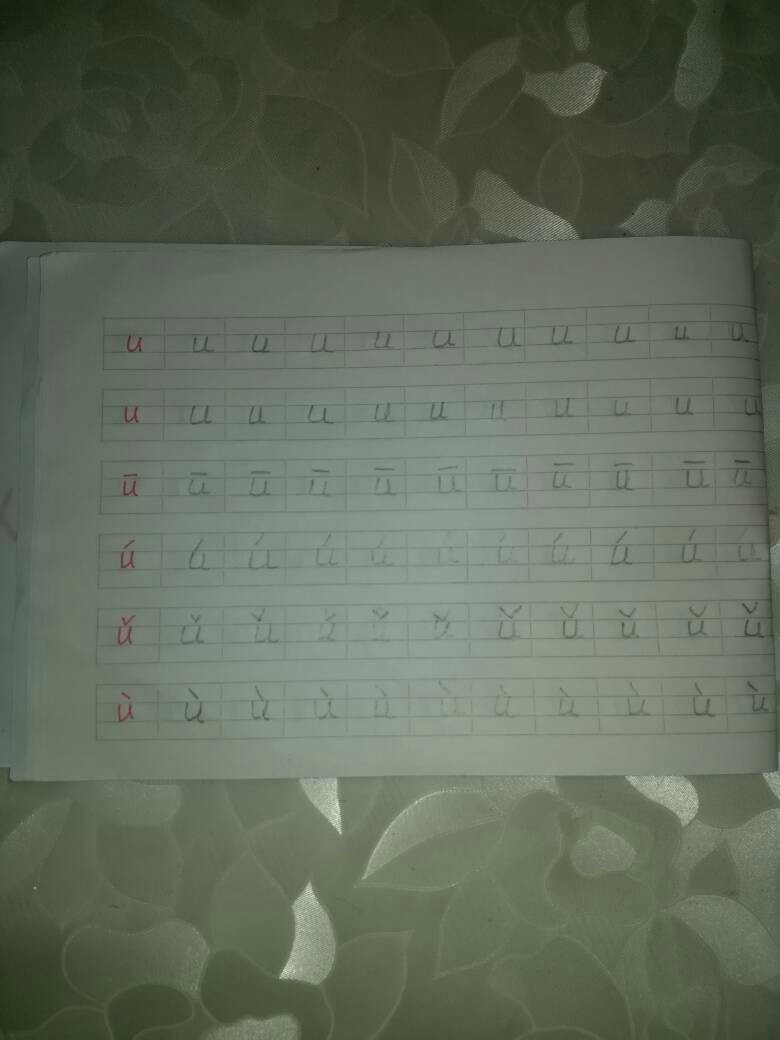 u u u u u u u u u u u
u u u u u u u u u u u
ū ū ū ū ū ū ū ū ū ū ū
ú ú ú ú ú ú ú ú ú ú ú
ǔ ǔ ǔ ǔ ǔ ǔ ǔ ǔ ǔ ǔ ǔ
ù ù ù ù ù ù ù ù ù ù ù